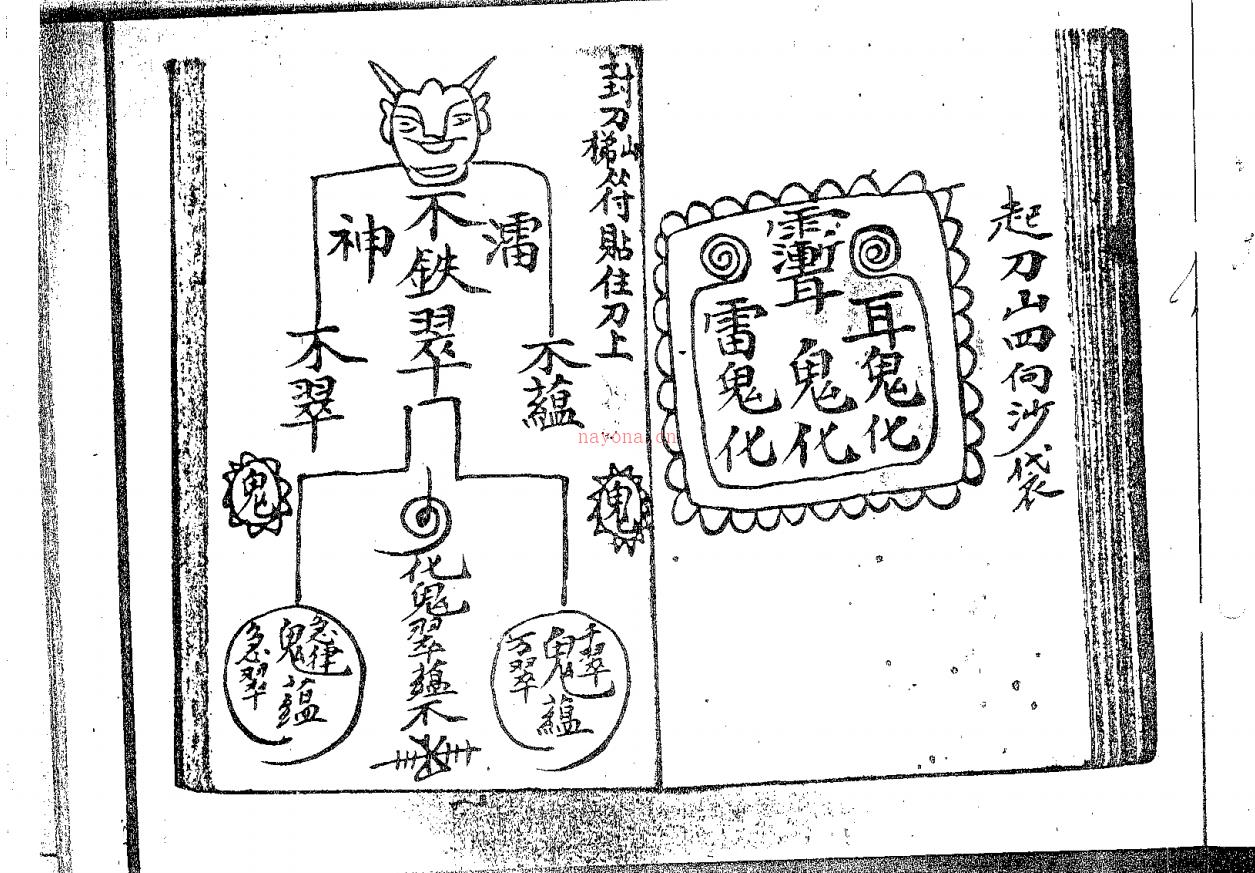 起刀山四向沙袋
耳鬼化
鬼化
雷鬼化
封刀山
梯符貼住刀上
不鉄翠
神
不翠
不蘊
鬼
鬼
化鬼翠蘊不
千翠
鬼蘊
万翠
急律
鬼蘊
急翠
nayona.cn